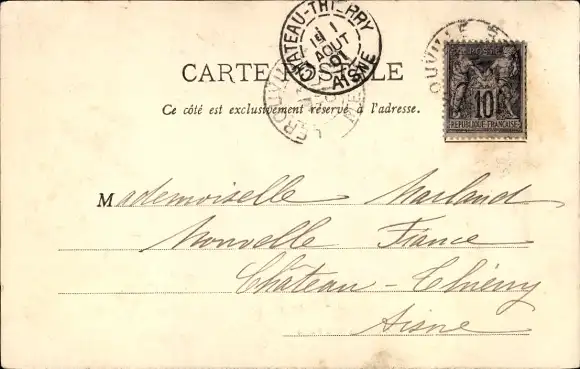 CHATEAU-THIERRY
19 1
AOUT
01
AISNE
CARTE POSTALE
Ce côté est exclusivement réservé à l'adresse.
POSTE
10
REPUBLIQUE FRANÇAISE
Mademoiselle Marland
Nouvelle France
Château-Thierry
Aisne